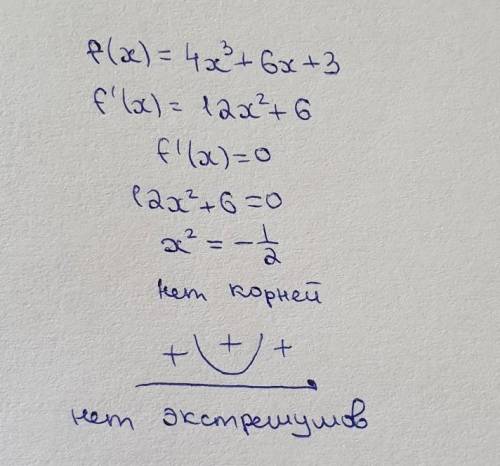 f(x) = 4x³ + 6x + 3
f'(x) = 12x² + 6
f'(x) = 0
12x² + 6 = 0
x² = -1/2
нет корней
+ + +
нет экстремумов